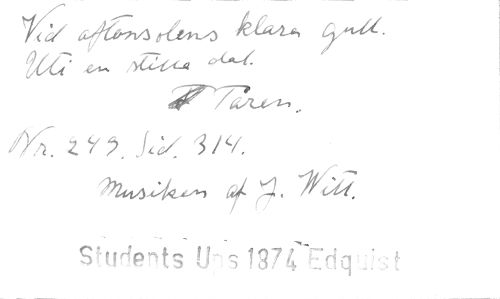 Vid aftonsolens klara gull.
Uti en stilla dal.
Tåren.
Nr. 249. Sid. 314.
Musiken af J. Witt.
Students Ups 1874 Edquist